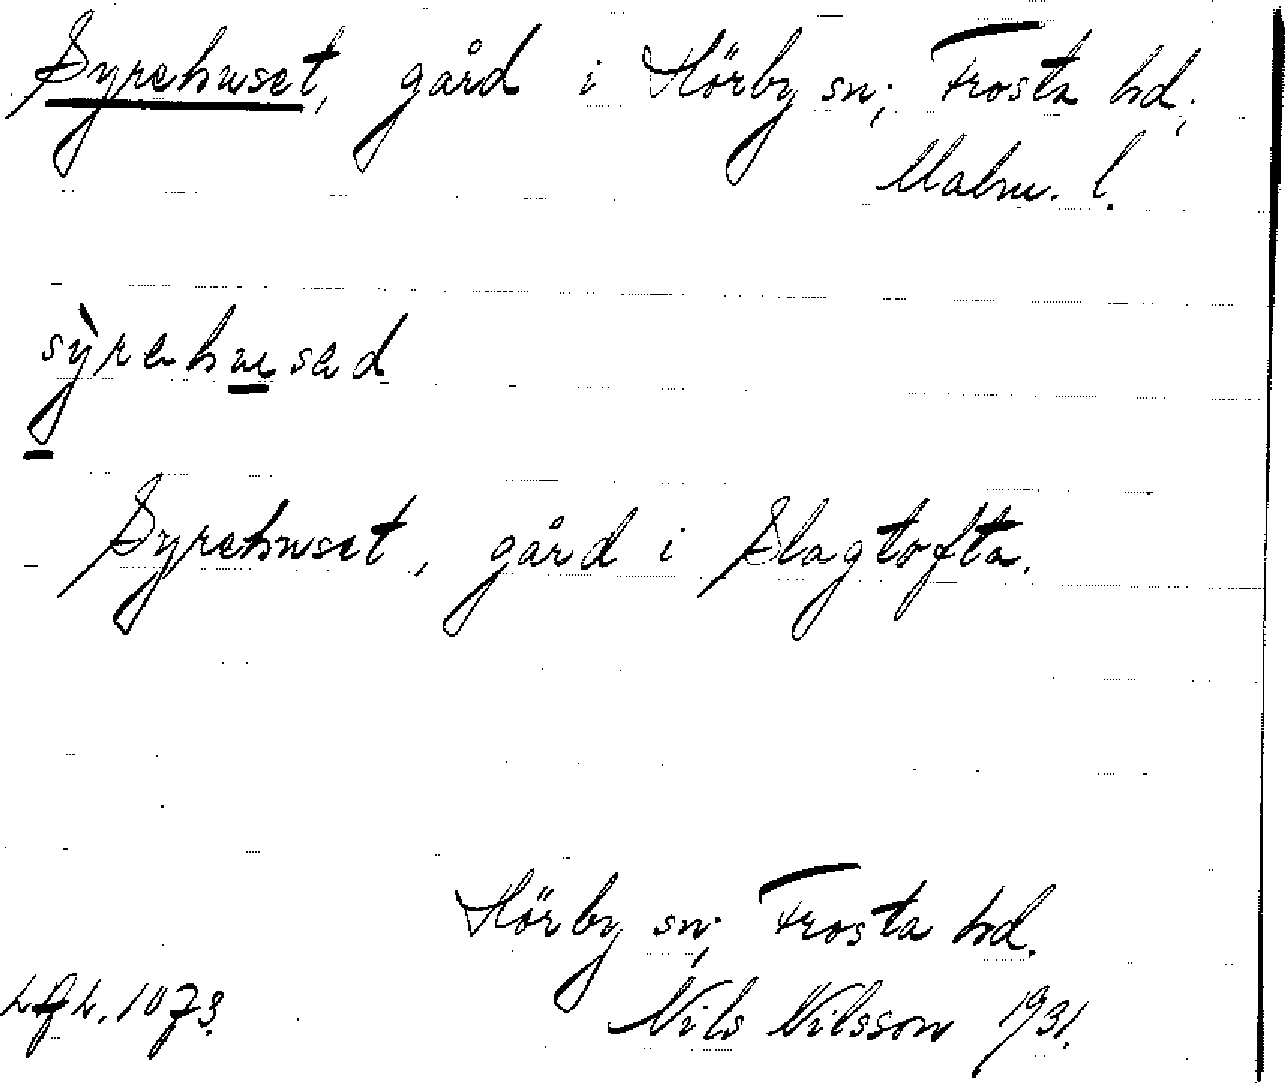 Syrehuset, gård i Hörby sn; Frosta hd;
Malm. l.
sỳrehused
Syrehuset, gård i Slagtofta.
Hörby sn; Frosta hd.
Nils Nilsson 1931.